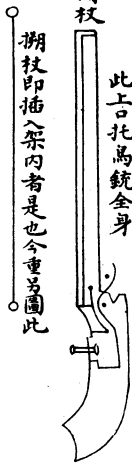 此上口托鳥銃全身
杖
搠杖即插入架内者是也今重另圖此